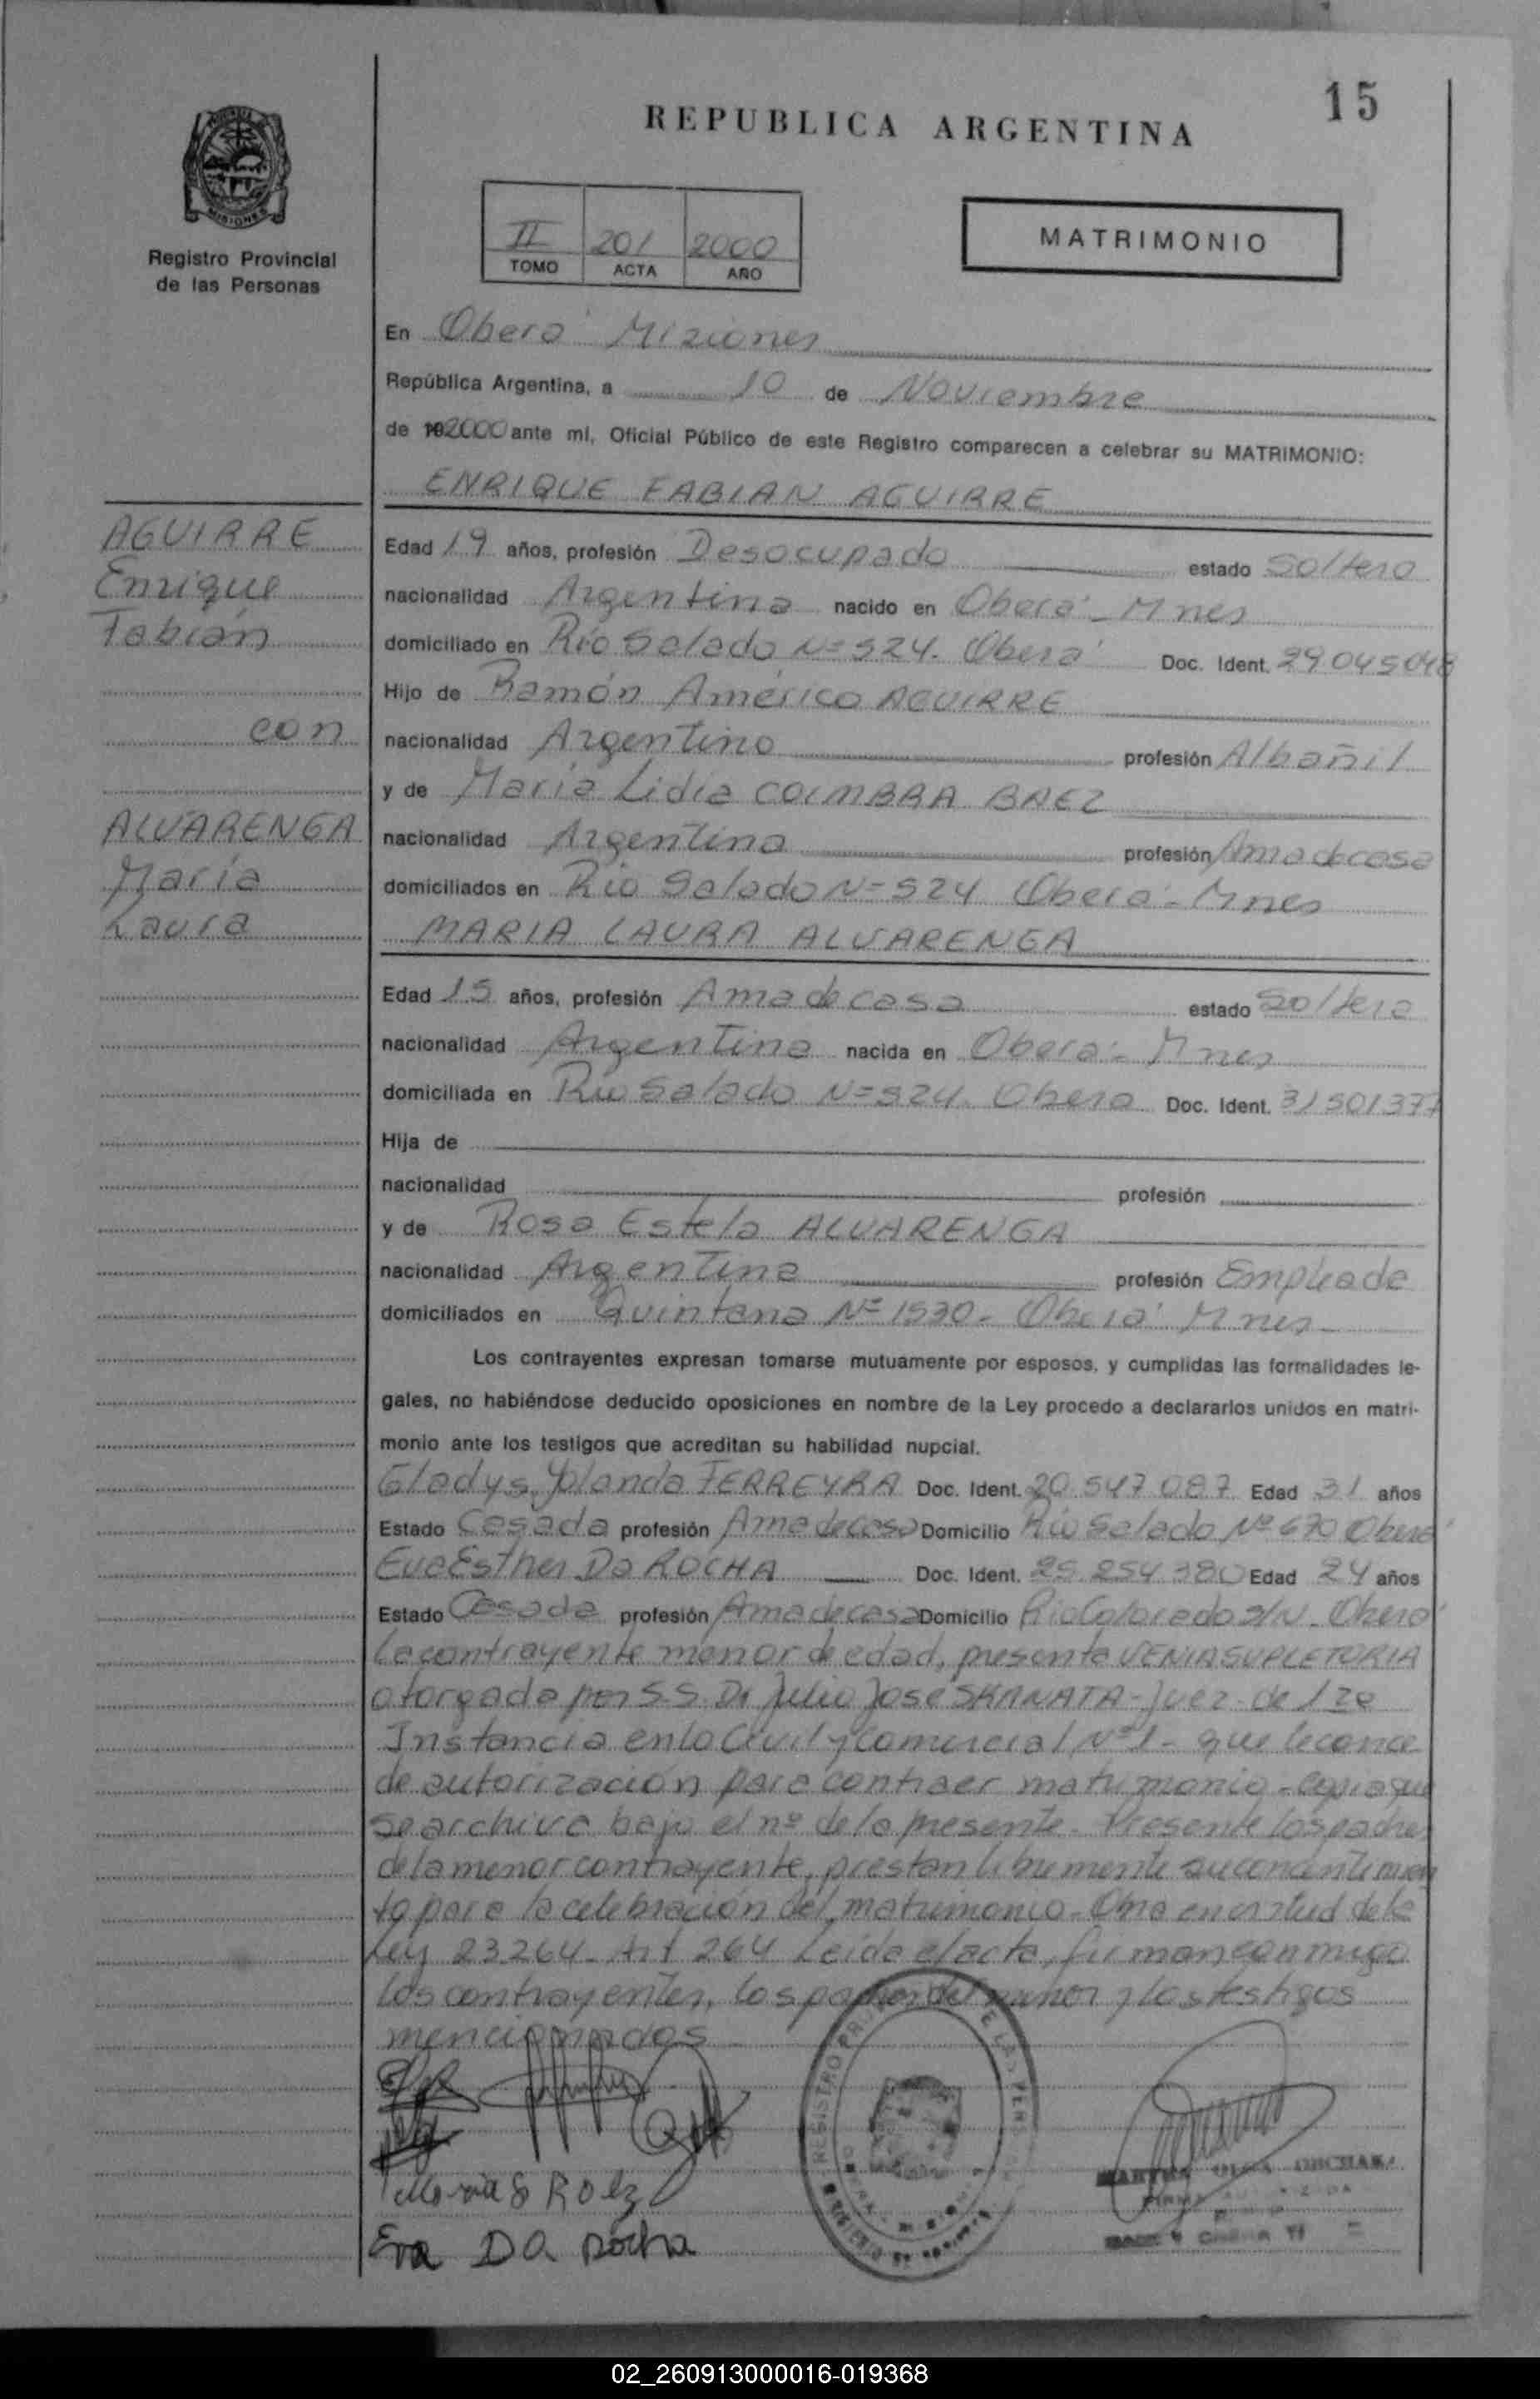 15
REPUBLICA ARGENTINA
MISIONES
Registro Provincial
de las Personas
II 201 2000
TOMO ACTA AÑO
MATRIMONIO
En Oberá Misiones
República Argentina, a 10 de Noviembre
de 192000 ante mí, Oficial Público de este Registro comparecen a celebrar su MATRIMONIO:
ENRIQUE FABIAN AGUIRRE
AGUIRRE
Enrique
Fabián
con
ALVARENGA
María
Laura
Edad 19 años, profesión Desocupado estado Soltero
nacionalidad Argentina nacido en Oberá - Mnes
domiciliado en Río Salado Nº 524. Oberá Doc. Ident. 29045048
Hijo de Ramón Américo AGUIRRE
nacionalidad Argentino profesión Albañil
y de María Lidia COIMBRA BAEZ
nacionalidad Argentina profesión Ama de casa
domiciliados en Río Salado Nº 524 Oberá - Mnes
MARIA LAURA ALVARENGA
Edad 15 años, profesión Ama de casa estado Soltera
nacionalidad Argentina nacida en Oberá - Mnes
domiciliada en Río Salado Nº 524 Oberá Doc. Ident. 31501377
Hija de
nacionalidad profesión
y de Rosa Estela ALVARENGA
nacionalidad Argentina profesión Empleada
domiciliados en Quintana Nº 1530 - Oberá Mnes
Los contrayentes expresan tomarse mutuamente por esposos, y cumplidas las formalidades le-
gales, no habiéndose deducido oposiciones en nombre de la Ley procedo a declararlos unidos en matri-
monio ante los testigos que acreditan su habilidad nupcial.
Gladys Yolanda FERREYRA Doc. Ident. 20.547.087 Edad 31 años
Estado Casada profesión Ama de casa Domicilio Río Salado Nº 670 Oberá
Eva Esther Da ROCHA Doc. Ident. 25.254.380 Edad 24 años
Estado Casada profesión Ama de casa Domicilio Río Colorado s/N - Oberá
La contrayente menor de edad, presenta VENIA SUPLETORIA
otorgada por S.S. Dr Julio José SKANATA - Juez - de 1ra
Instancia en lo Civil y Comercial Nº 1 - que le conce
de autorización para contraer matrimonio - copia que
se archiva bajo el nº de la presente - Presente los padres
de la menor contrayente, prestan libremente su consentimien
to para la celebración del matrimonio - en virtud de la
Ley 23264 - Art 264 Leída el acta, firman conmigo
los contrayentes, los padres del menor y los testigos
mencionados
Eva DA Rocha
MARTHA OLGA
02_260913000016-019368